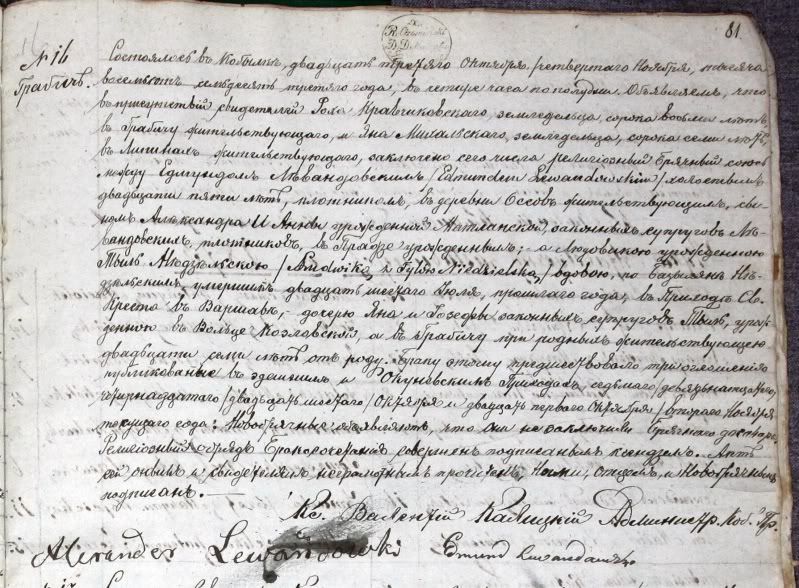 81
№ 16
Грабичъ.
Состоялось въ Кобылкѣ, двадцать третяго Октября /четвертаго Ноября, тысяча
восемьсотъ семьдесятъ третяго года, въ четыре часа по полудни. Объявляемъ, что
въ присутствіи свидѣтелей Роха Кравчиковскаго, земледѣльца, сорока восьми лѣтъ,
въ Грабичу жительствующаго, и Яна Михальскаго, земледѣльца, сорока семи лѣтъ,
въ Липинахъ жительствующаго, заключено сего числа религіозный брачный союзъ
между Едмундомъ Лѣвандовскимъ /Edmundem Lewandowskim/ холостымъ,
двадцати пяти лѣтъ, плотникомъ, въ деревни Оссовъ жительствующимъ, сы-
номъ Александра и Анны урожденной законныхъ супруговъ Лѣ-
вандовскихъ, плотниковъ, въ Прадзе урожденнымъ; а Людовикою урожденною
Тыль Нѣдзѣльскою /Ludwiką z Tylów Niedzielską/ вдовою, по Нѣ-
дзѣльскимъ, умершимъ двадцать шестаго Юля, прошлаго года, въ Приходѣ Св.
Креста въ Варшавѣ, дочерю Яна и Іозефы законныхъ супруговъ Тыль, урож-
денною въ Вольце Козловской, а въ Грабичу при родныхъ жительствующею
двадцати семи лѣтъ отъ роду. Браку этому предшествовало три оглашенія
публикованые въ здешнимъ и Окуневскимъ Приходахъ, седьмаго /девятьнатцатаго/,
четырнадцатаго /двадцать шестаго/ Октября и двадцать перваго Октября /втораго Ноября
текущаго года: Новобрачные объявляютъ, что они не заключили брачнаго договора.
Религіозный обрядъ бракосочетанія совершенъ подписанымъ ксендземъ. Актъ
сей онымъ и свидѣтелямъ неграмотнымъ прочитанъ, Нами, отцемъ, и Новобрачнымъ
подписанъ. —
Кс. Валентій Администр. Коб. Пр.
Alexander Lewandowski Edmund Lewandowski